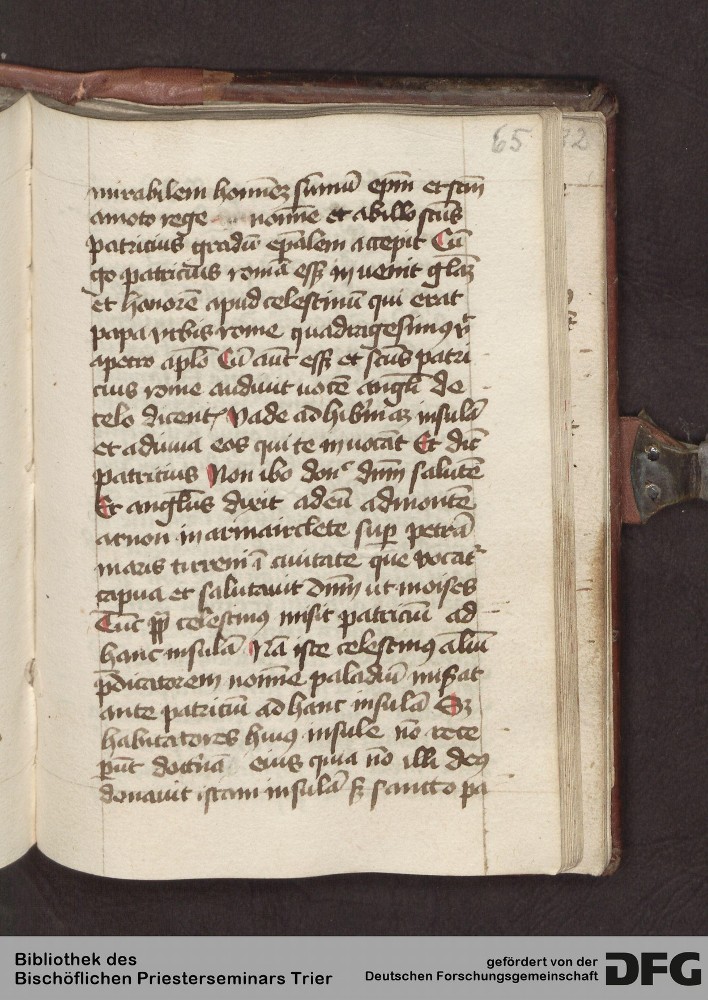 65 72
mirabilem hominē summū epm̄ et scm̄
amoto rege nomine et ab illo scūs
patricius gradū epalem accepit Cū
go patricius romā esset in uenit glaz
et honorē apud celestinū qui erat
papa vrbis rome quadragesimus
a petro aplo Cū aūt esset et scūs patri
cius rome audiuit uocē angli de
celo dicent Vade ad hiberniaz insulā
et adiuua eos qui te inuocāt Et dic̄
patricius Non ibo donc dnm̄ salutē
Et anglus dixit ad eū ad montē
arnon in armairclete sup petrā
maris tirreni ī ciuitate que vocat
capua et salutauit dnm̄ ut moises
Tūc pp celestinus misit patriciū ad
hanc insulā Nā iste celestinus aliū
pdicatorem nomine paladiū miserat
ante patriciū ad hanc insulā Sz
habitatores huius insule nō rece
perūt doctrinā eius quia nō illi deus
donauit istam insulā sz sancto pa
Bibliothek des
Bischöflichen Priesterseminars Trier
gefördert von der
Deutschen Forschungsgemeinschaft DFG